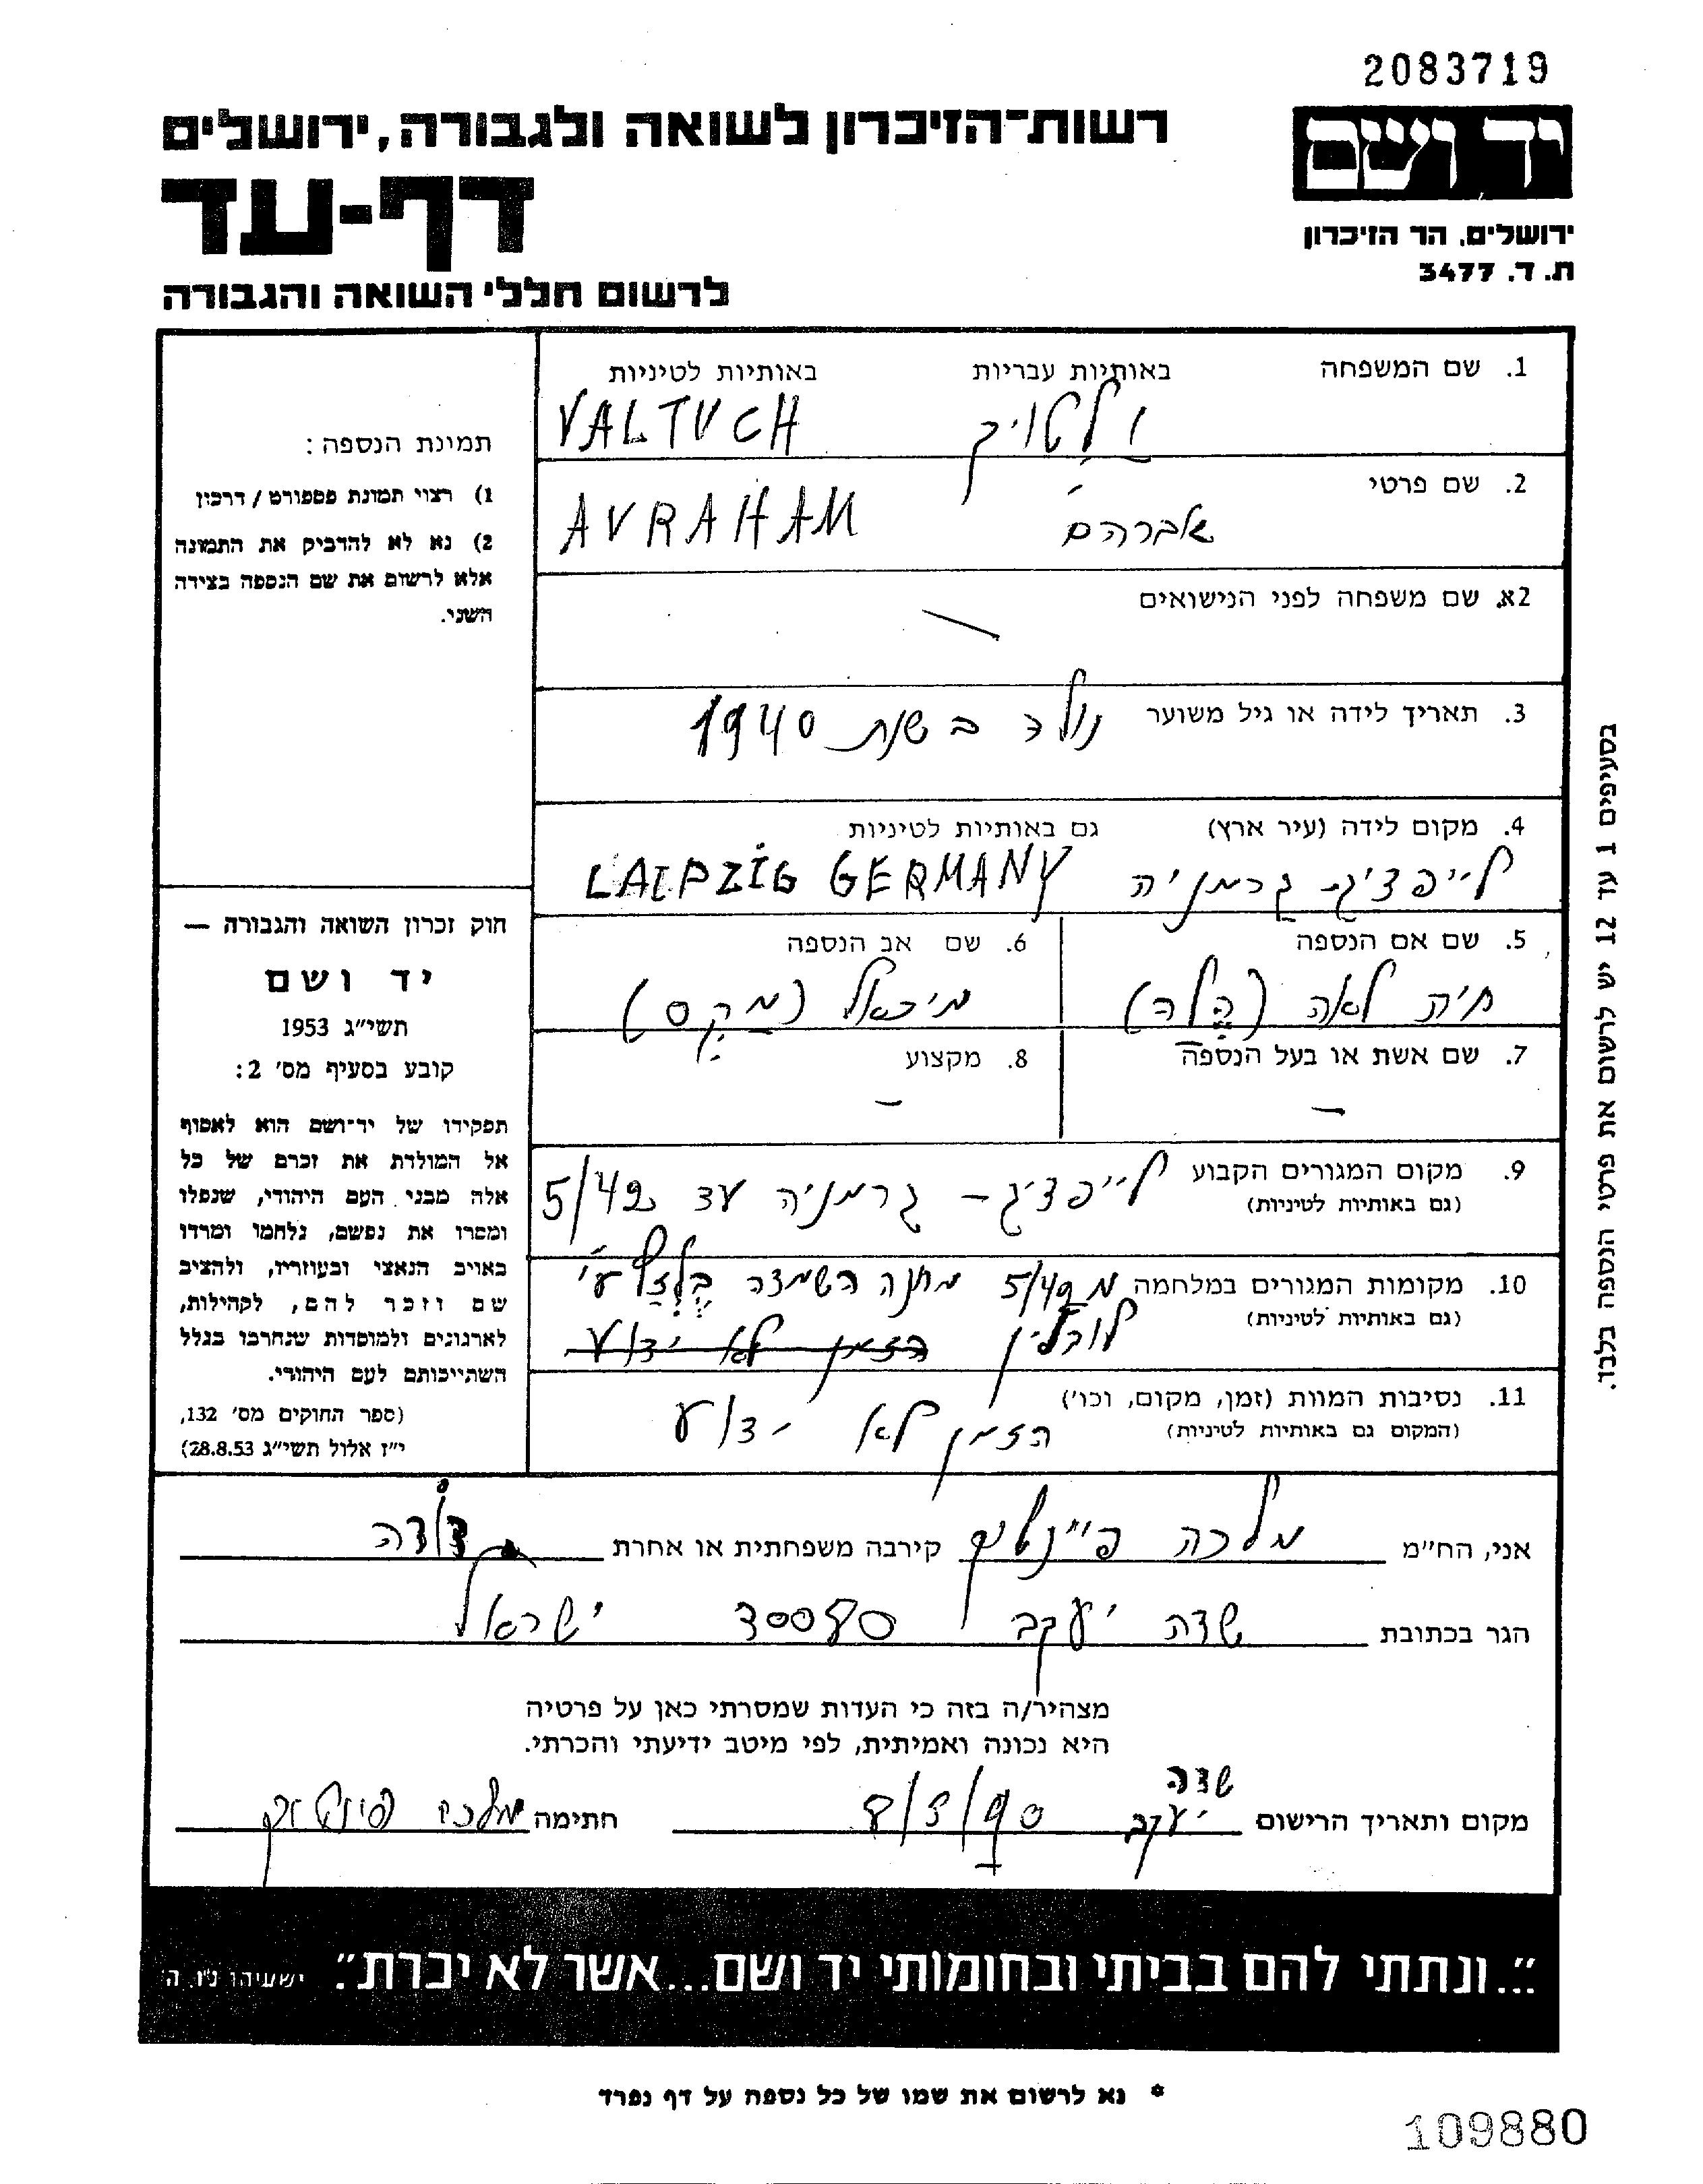 2083719
יד ושם
ירושלים, הר הזיכרון
ת. ד. 3477
רשות־הזיכרון לשואה ולגבורה, ירושלים
דף-עד
לרשום חללי השואה והגבורה
תמונת הנספה:
1) רצוי תמונת פספורט / דרכון
2) נא לא להדביק את התמונה
אלא לרשום את שם הנספה בצידה
השני.
חוק זכרון השואה והגבורה —
יד ושם
תשי״ג 1953
קובע בסעיף מס׳ 2:
תפקידו של יד־ושם הוא לאסוף
אל המולדת את זכרם של כל
אלה מבני העם היהודי, שנפלו
ומסרו את נפשם, נלחמו ומרדו
באויב הנאצי ובעוזריו, ולהציב
שם וזכר להם, לקהילות,
לארגונים ולמוסדות שנחרבו בגלל
השתייכותם לעם היהודי.
(ספר החוקים מס׳ 132,
י״ז אלול תשי״ג 28.8.53)
1. שם המשפחה באותיות עבריות באותיות לטיניות
ולטוך VALTUCH
2. שם פרטי
אברהם AVRAHAM
2א. שם משפחה לפני הנישואים
3. תאריך לידה או גיל משוער נולד בשנת 1940
4. מקום לידה (עיר ארץ) גם באותיות לטיניות
לייפציג - גרמניה LAIPZIG GERMANY
5. שם אם הנספה 6. שם אב הנספה
חיה לאה (הלה) מיכאל (מקס)
7. שם אשת או בעל הנספה 8. מקצוע
– –
9. מקום המגורים הקבוע לייפציג - גרמניה עד 5/42
(גם באותיות לטיניות)
10. מקומות המגורים במלחמה מ 5/42 מחנה השמדה בלזץ ע״י
(גם באותיות לטיניות) לובלין הזמן לא ידוע
11. נסיבות המוות (זמן, מקום, וכו׳)
(המקום גם באותיות לטיניות) הזמן לא ידוע
אני, הח״מ מלכה קירבה משפחתית או אחרת דודה
הגר בכתובת שדה יעקב 30080 ישראל
מצהיר/ה בזה כי העדות שמסרתי כאן על פרטיה
היא נכונה ואמיתית, לפי מיטב ידיעתי והכרתי.
מקום ותאריך הרישום שדה יעקב 8/3/90 חתימה מלכה
בסעיפים 1 עד 12 יש לרשום את פרטי הנספה בלבד.
״...ונתתי להם בביתי ובחומותי יד ושם...אשר לא יכרת״. ישעיהו נ״ו, ה׳
* נא לרשום את שמו של כל נספה על דף נפרד
109880